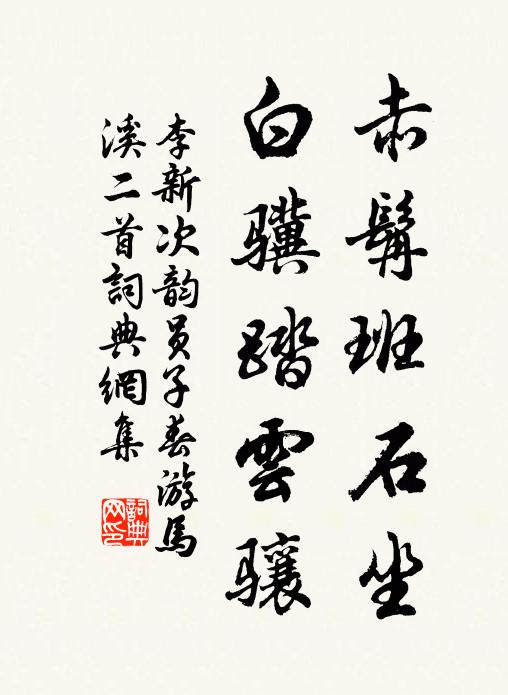 赤髯班石坐
白骥踏雲骧
李新次韵员子春游馬
溪二首詞典網集
詞典
网印